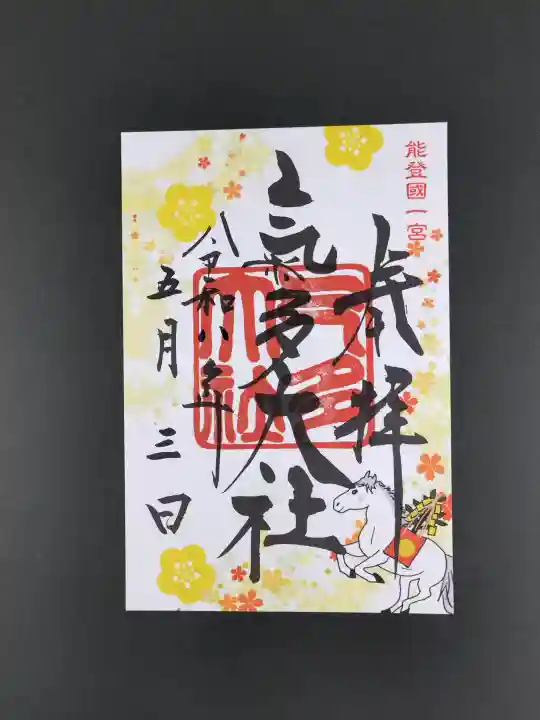 能登國一宮
奉拝
氣多大社
令和八年
五月三日